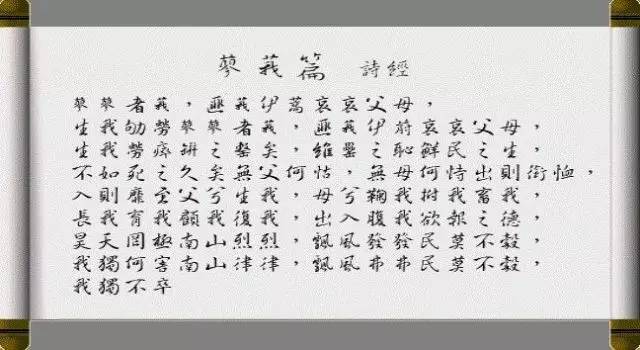 蓼莪篇 詩經
蓼蓼者莪，匪莪伊蒿哀哀父母，
生我劬勞蓼蓼者莪，匪莪伊蔚哀哀父母，
生我勞瘁缾之罄矣，維罍之恥鮮民之生，
不如死之久矣無父何怙，無母何恃出則銜恤，
入則靡至父兮生我，母兮鞠我拊我畜我，
長我育我顧我復我，出入腹我欲報之德，
昊天罔極南山烈烈，飄風發發民莫不穀，
我獨何害南山律律，飄風弗弗民莫不穀，
我獨不卒